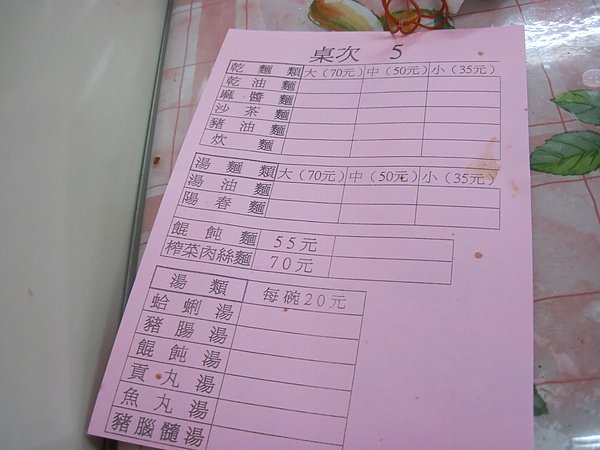 桌次 5
乾麵類 大(70元) 中(50元) 小(35元)
乾油麵
麻醬麵
沙茶麵
豬油麵
炊麵
湯麵類 大(70元) 中(50元) 小(35元)
湯油麵
陽春麵
餛飩麵 55元
榨菜肉絲麵 70元
湯類 每碗20元
蛤蜊湯
豬腸湯
餛飩湯
貢丸湯
魚丸湯
豬腦髓湯